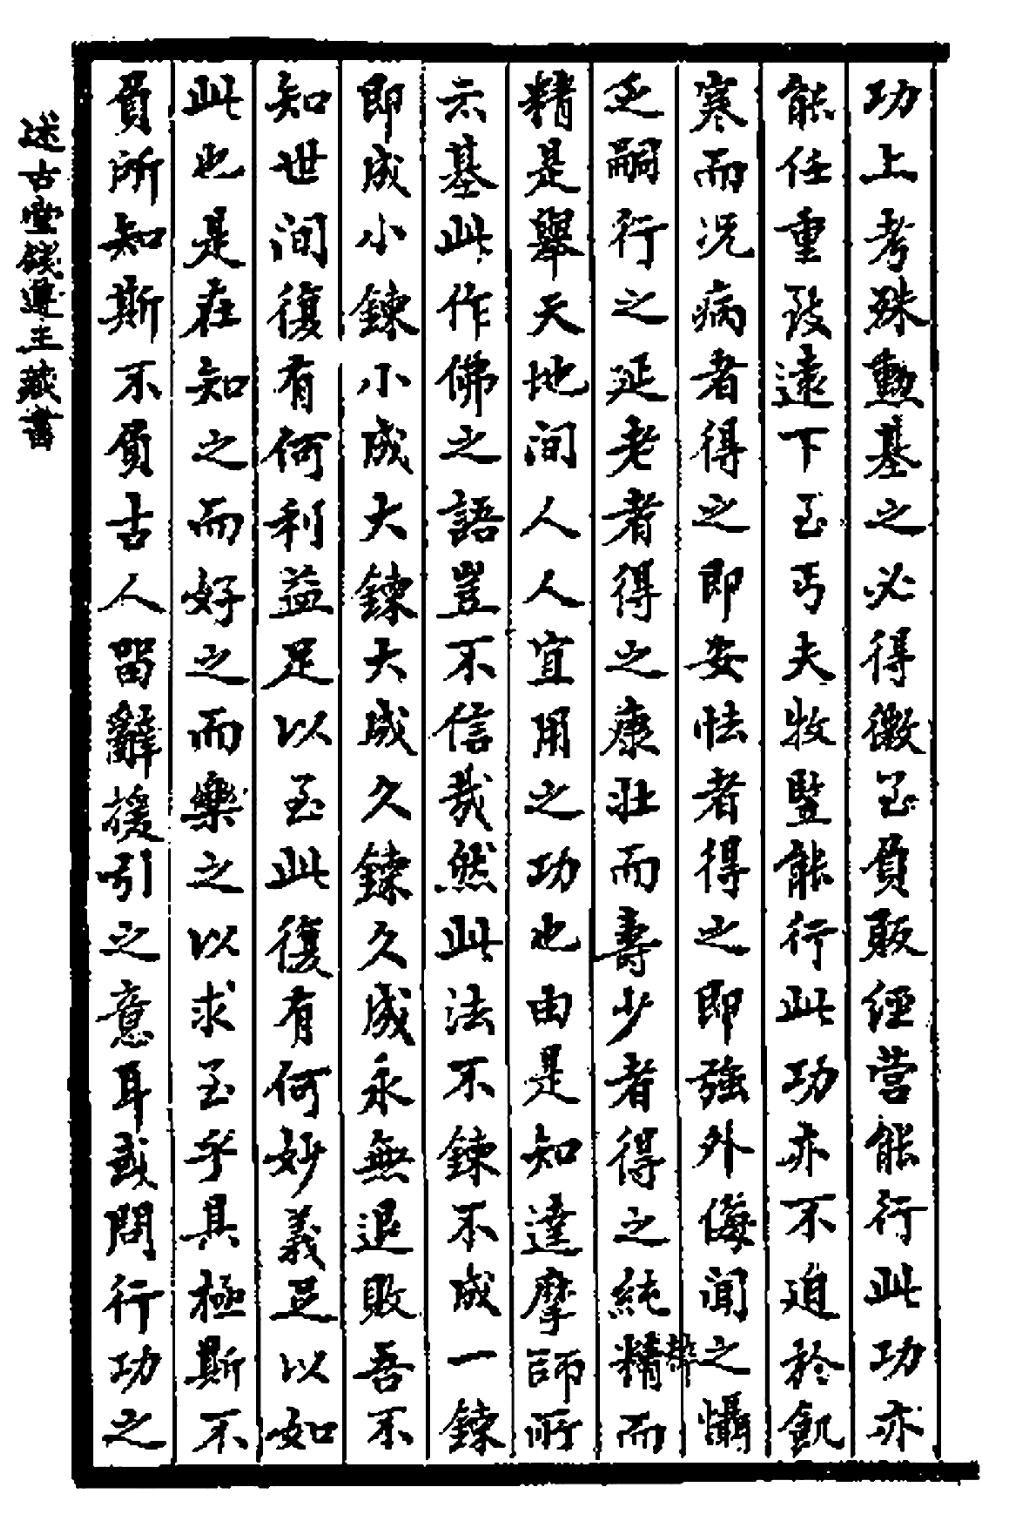 功上考殊勳基之必得徵至負販經營能行此功亦
能任重致遠下至丐夫牧豎能行此功亦不迫於飢
寒而况病者得之即安怯者得之即強外侮聞之懾
乏嗣行之延老者得之康壯而壽少者得之純粹精而
精是舉天地间人人宜用之功也由是知達摩師所
云基此作佛之語豈不信哉然此法不鍊不成一鍊
即成小鍊小成大鍊大成久鍊久成永無退敗吾不
知世间復有何利益足以至此復有何妙義足以如
此也是在知之而好之而樂之以求至乎其極斯不
負所知斯不負古人留辭援引之意耳或問行功之
述古堂錢遵王藏書